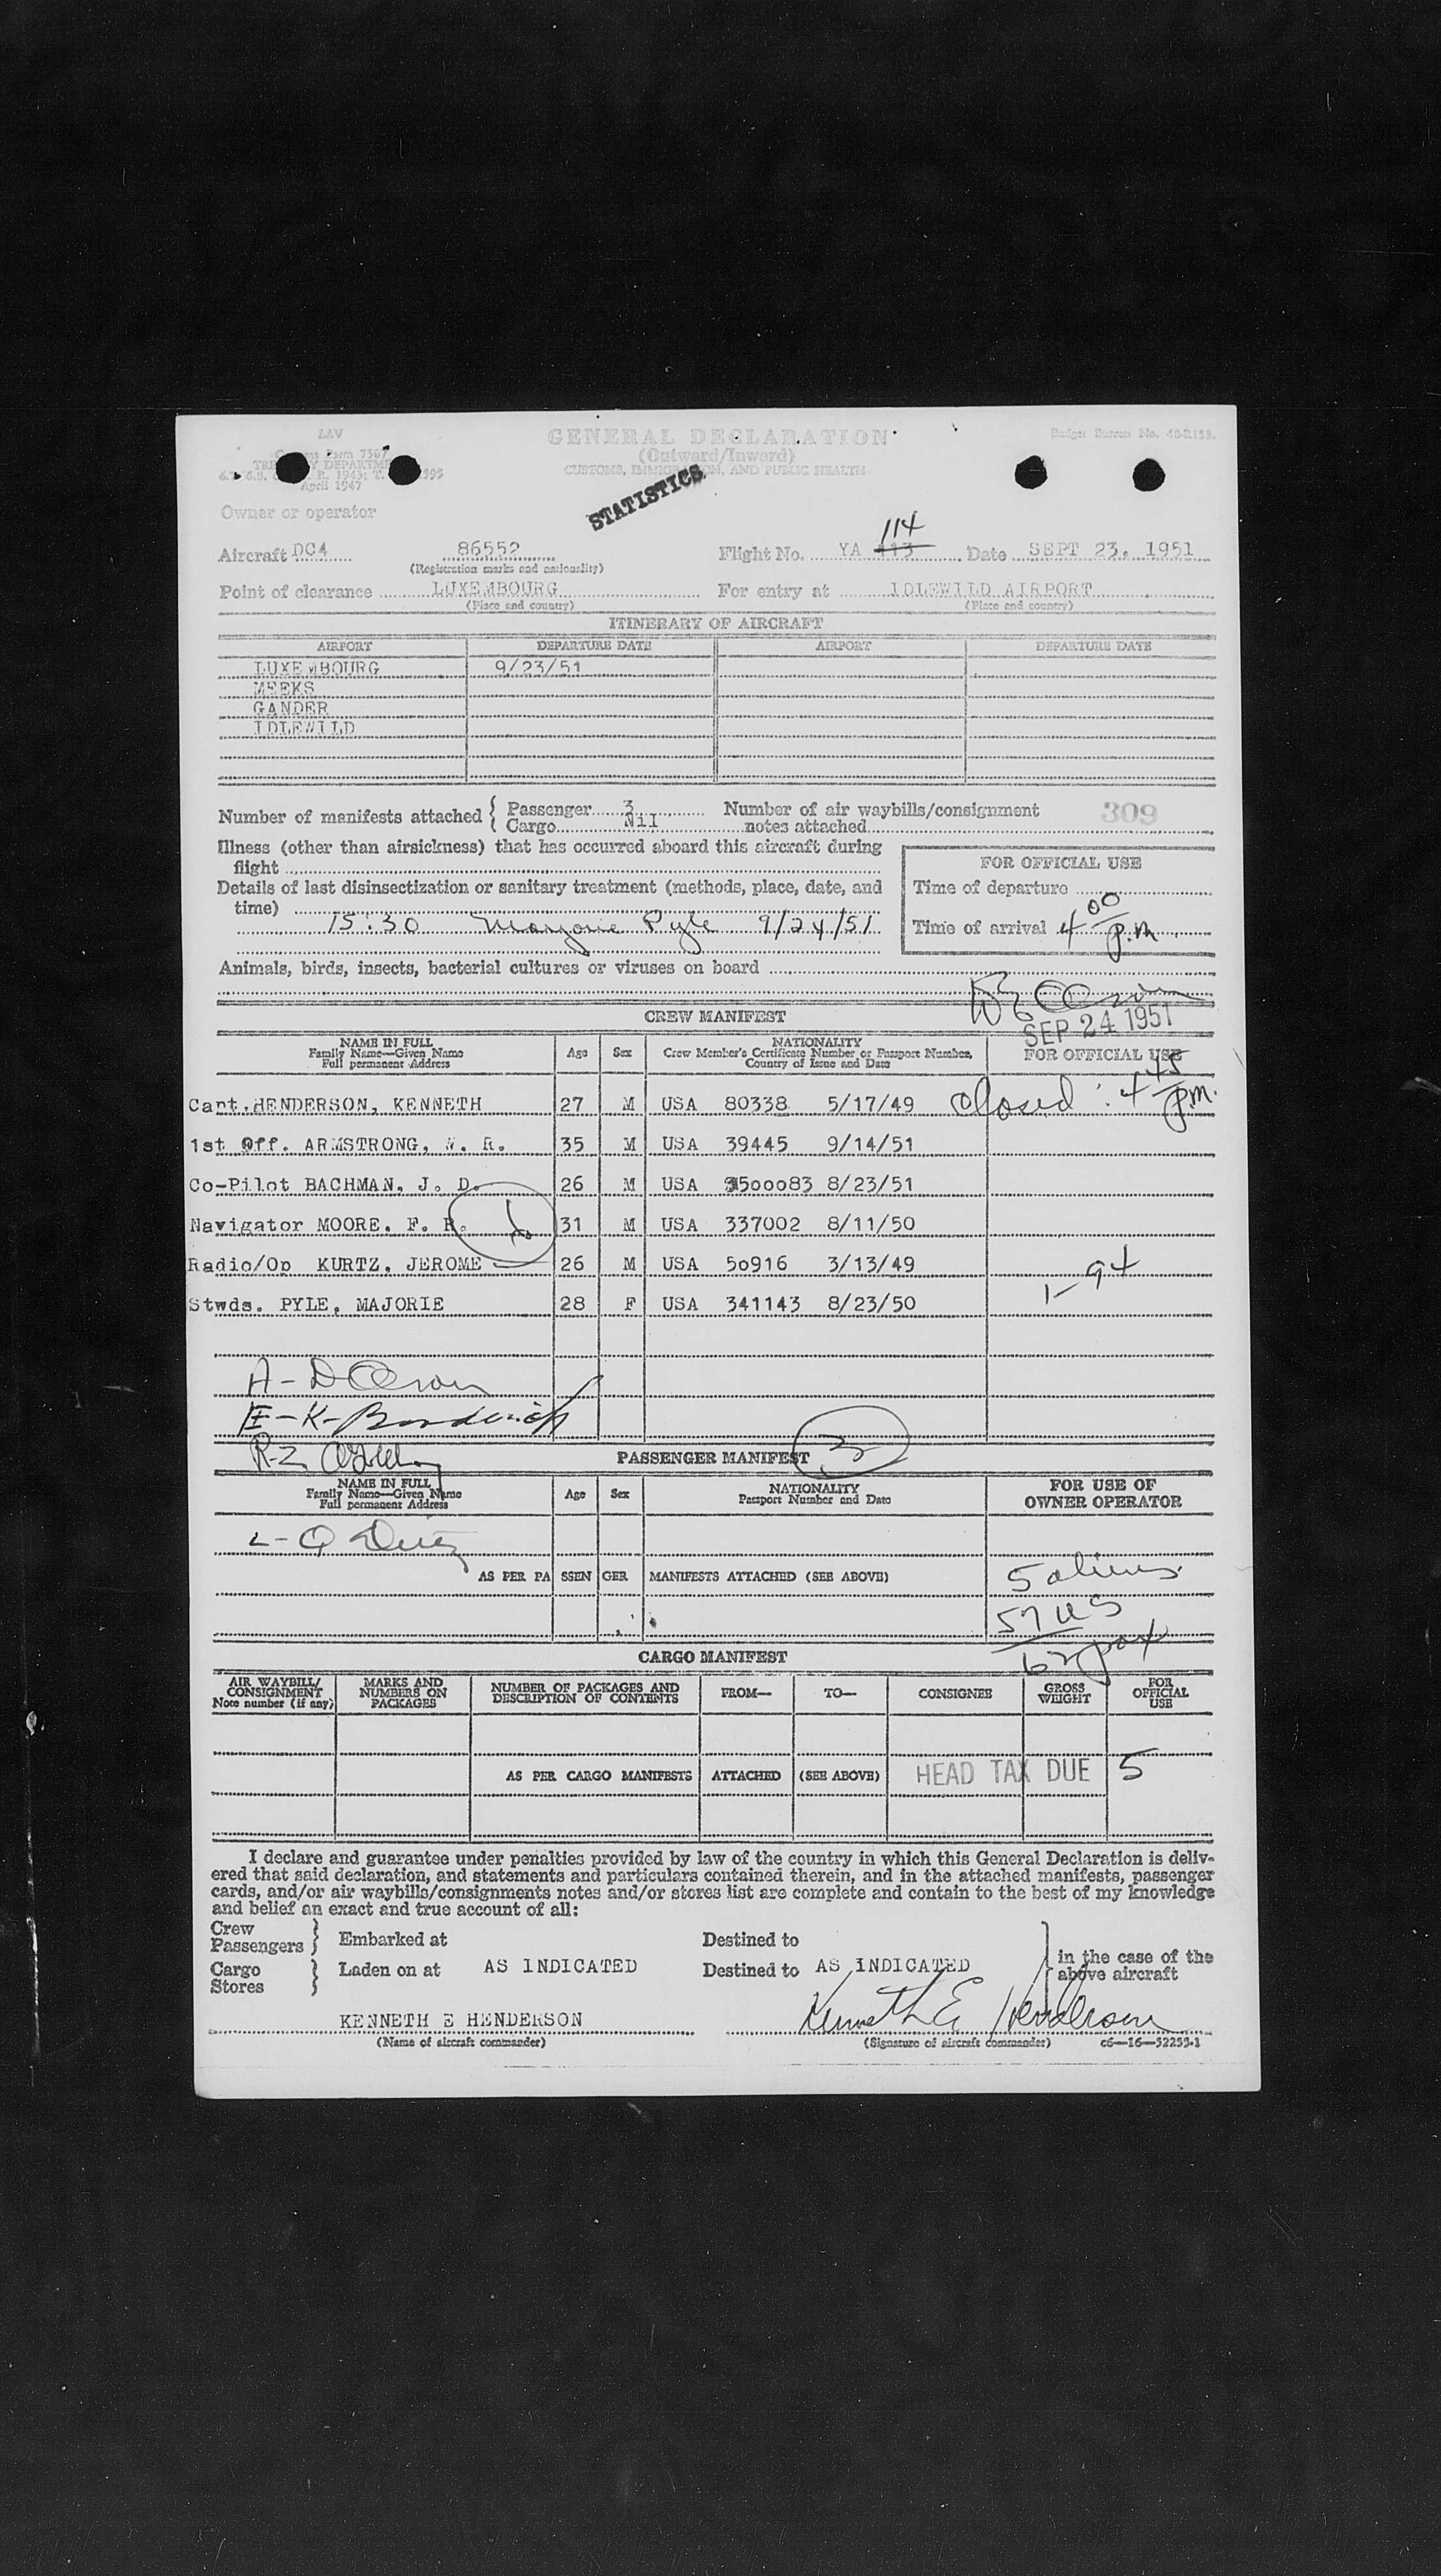 LAV
GENERAL DECLARATION
Budget Bureau No. 48-R153.
(Outward/Inward)
CUSTOMS, IMMIGRATION, AND PUBLIC HEALTH
Form 7507
April 1947
STATISTICS
Owner or operator
114
Aircraft DC4 86552 Flight No. YA 113 Date SEPT 23, 1951
(Registration marks and nationality)
Point of clearance LUXEMBOURG For entry at IDLEWILD AIRPORT
(Place and country) (Place and country)
ITINERARY OF AIRCRAFT
AIRPORT DEPARTURE DATE AIRPORT DEPARTURE DATE
LUXEMBOURG 9/23/51
MEEKS
GANDER
IDLEWILD
Number of manifests attached { Passenger 3 Number of air waybills/consignment 309
Cargo Nil notes attached
Illness (other than airsickness) that has occurred aboard this aircraft during
flight
FOR OFFICIAL USE
Details of last disinsectization or sanitary treatment (methods, place, date, and
time)
Time of departure
15:30 Marjorie Pyle 9/24/51
Time of arrival 4 00 p.m
Animals, birds, insects, bacterial cultures or viruses on board
CREW MANIFEST
SEP 24 1951
NAME IN FULL
Family Name—Given Name
Full permanent Address
Age Sex NATIONALITY
Crew Member's Certificate Number or Passport Number,
Country of Issue and Date
FOR OFFICIAL USE
closed : 4 45 p.m.
Capt. HENDERSON, KENNETH 27 M USA 80338 5/17/49
1st Off. ARMSTRONG, W. R. 35 M USA 39445 9/14/51
Co-Pilot BACHMAN, J. D. 26 M USA 500083 8/23/51
Navigator MOORE, F. R. 31 M USA 337002 8/11/50
Radio/Op KURTZ, JEROME 26 M USA 50916 3/13/49
1-94
Stwds. PYLE, MAJORIE 28 F USA 341143 8/23/50
PASSENGER MANIFEST 3
NAME IN FULL
Family Name—Given Name
Full permanent Address
Age Sex NATIONALITY
Passport Number and Date
FOR USE OF
OWNER OPERATOR
AS PER PASSENGER MANIFESTS ATTACHED (SEE ABOVE)
5 aliens
57 US
62 pax
CARGO MANIFEST
AIR WAYBILL/
CONSIGNMENT
Note number (if any)
MARKS AND
NUMBERS ON
PACKAGES
NUMBER OF PACKAGES AND
DESCRIPTION OF CONTENTS
FROM— TO— CONSIGNEE
GROSS
WEIGHT
FOR
OFFICIAL
USE
AS PER CARGO MANIFESTS ATTACHED (SEE ABOVE) HEAD TAX DUE 5
I declare and guarantee under penalties provided by law of the country in which this General Declaration is deliv-
ered that said declaration, and statements and particulars contained therein, and in the attached manifests, passenger
cards, and/or air waybills/consignments notes and/or stores list are complete and contain to the best of my knowledge
and belief an exact and true account of all:
Crew
Passengers } Embarked at Destined to
Cargo
Stores } Laden on at AS INDICATED Destined to AS INDICATED
in the case of the
above aircraft
KENNETH E HENDERSON Kenneth E Henderson
(Name of aircraft commander) (Signature of aircraft commander) c6—16—52253-1